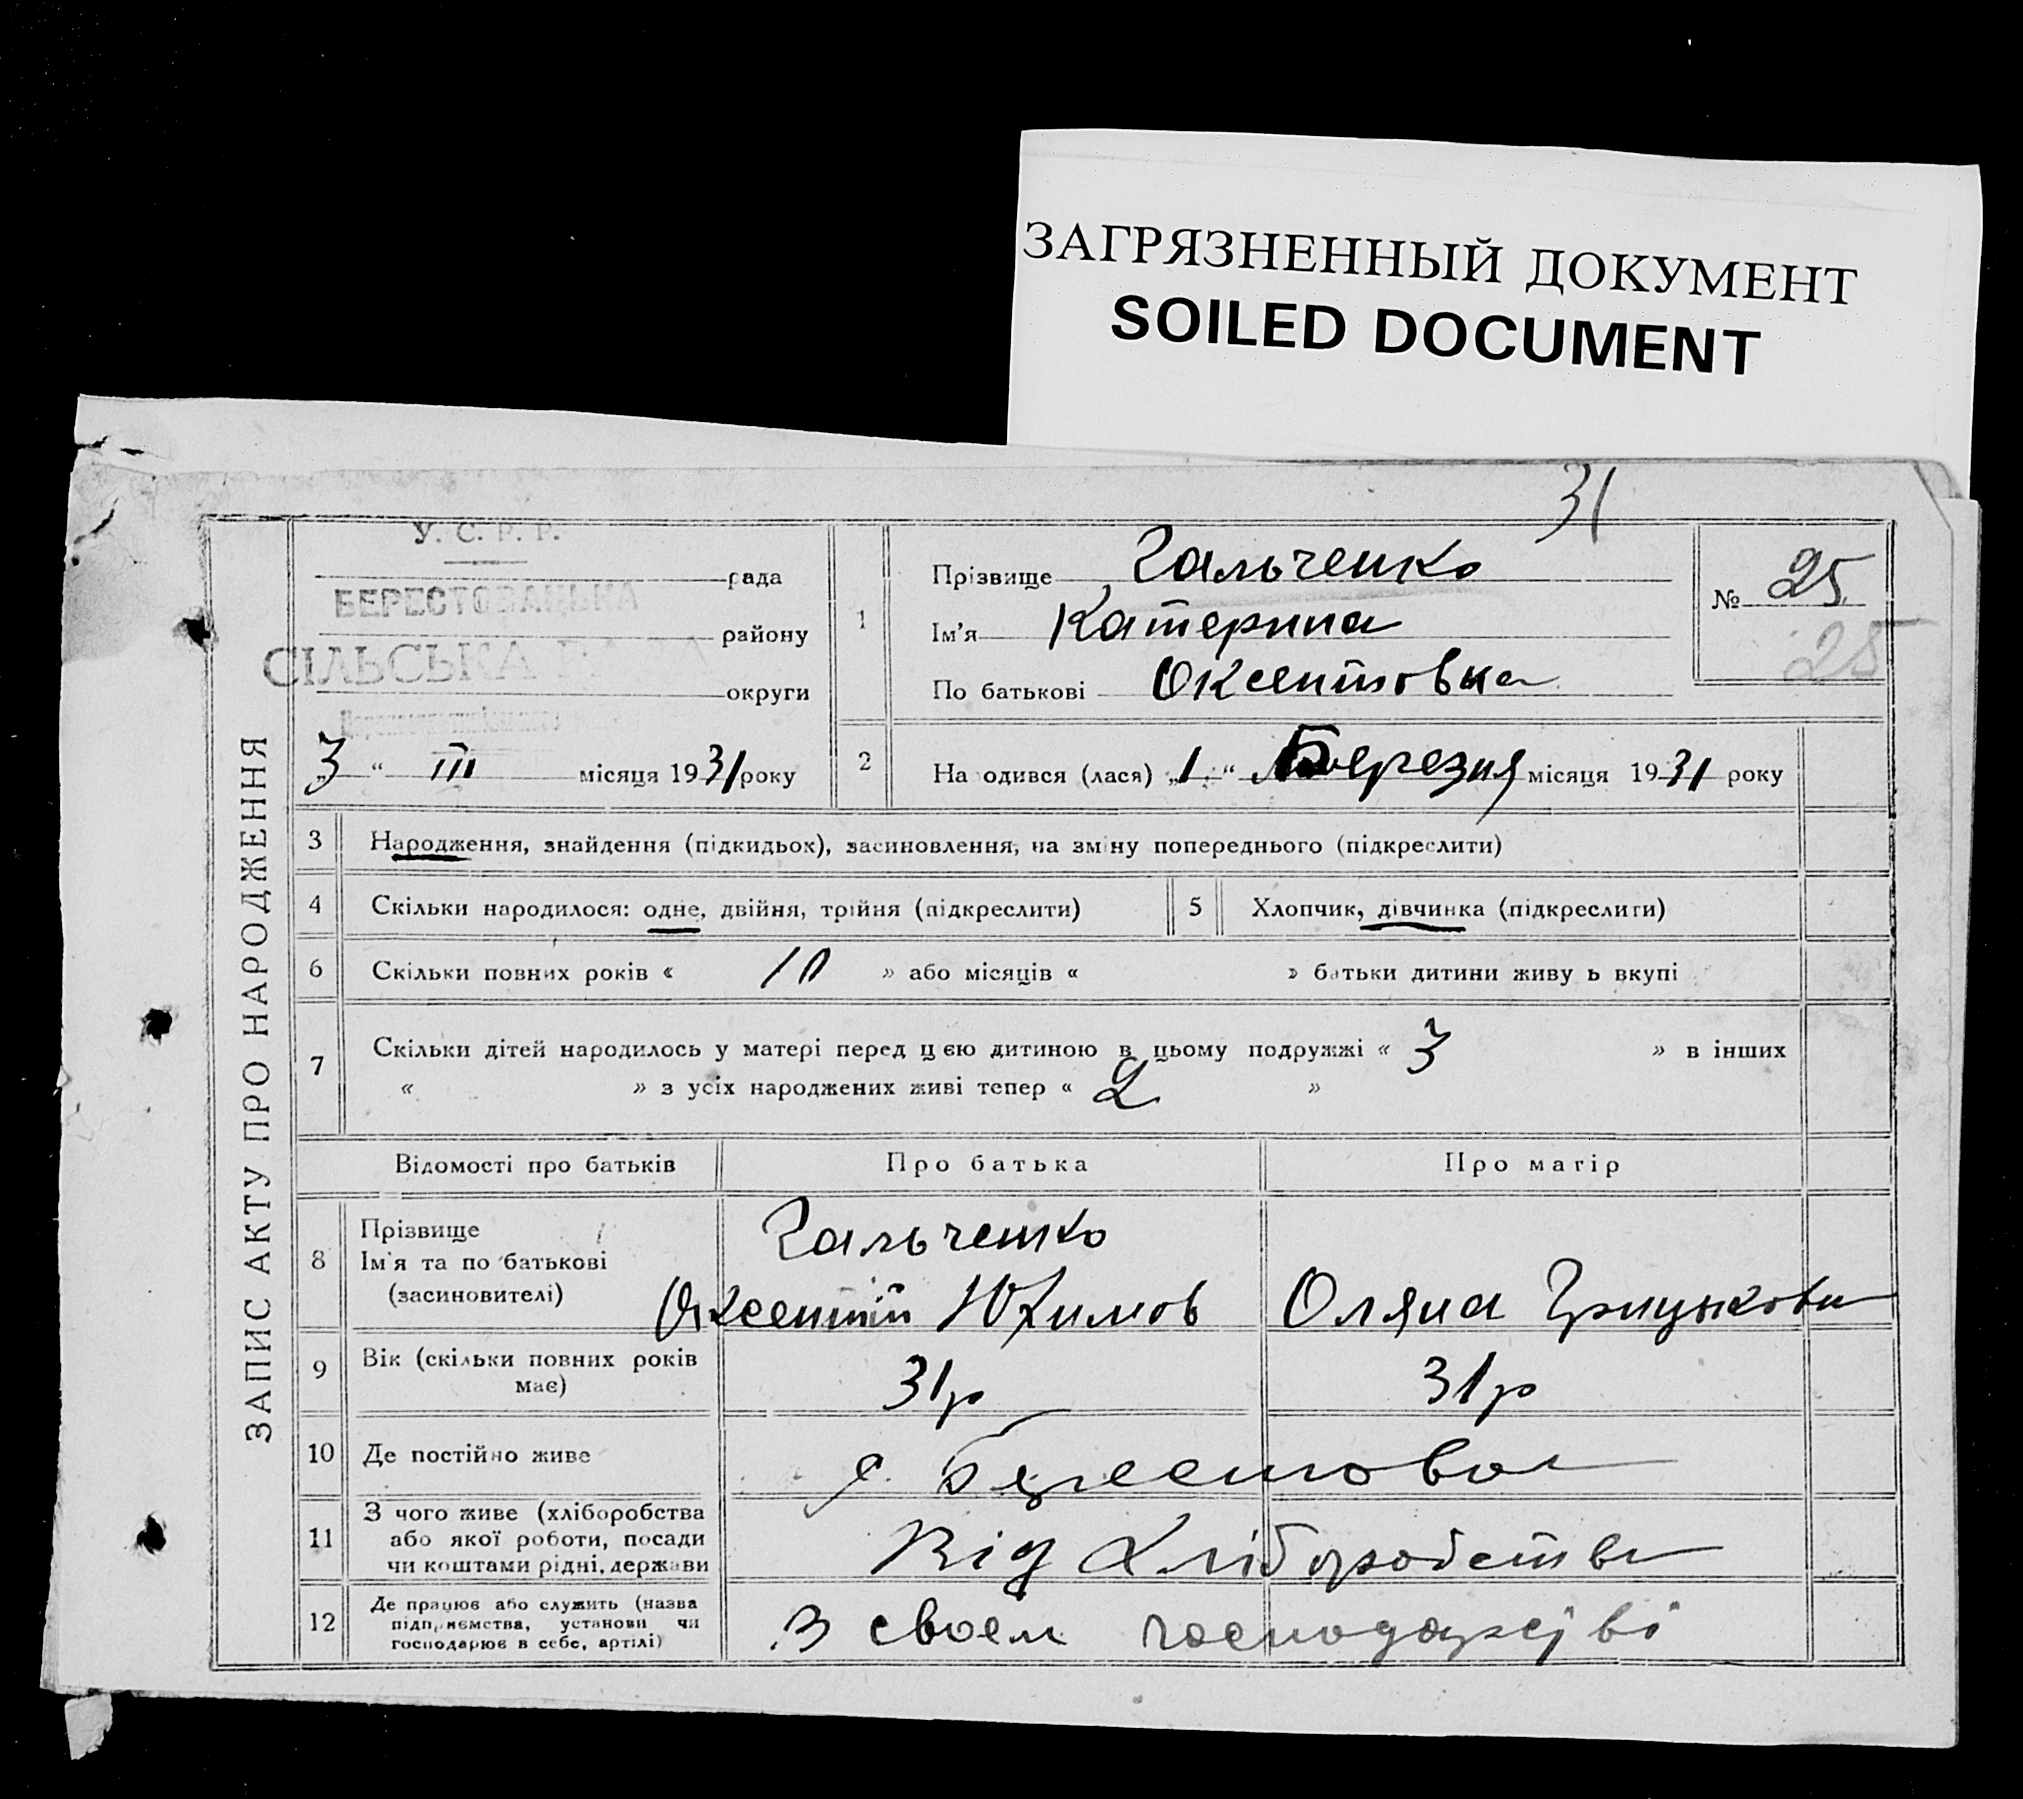 ЗАГРЯЗНЕННЫЙ ДОКУМЕНТ
SOILED DOCUMENT
31
ЗАПИС АКТУ ПРО НАРОДЖЕННЯ
У. С. Р. Р.
рада
БЕРЕСТОВАЦЬКА
району
СІЛЬСЬКА РАДА
округи
„3“ III місяця 1931 року
1
Прізвище Гальченко
Ім'я Катерина
По батькові Оксентовна
№ 25
25
2
На одився (лася) „1“ Березня місяця 1931 року
3 Народження, знайдення (підкидьох), засиновлення, на зміну попереднього (підкреслити)
4 Скільки народилося: одне, двійня, трійня (підкреслити) 5 Хлопчик, дівчинка (підкреслити)
6 Скільки повних років « 10 » або місяців « » батьки дитини живу ь вкупі
7 Скільки дітей народилось у матері перед цією дитиною в цьому подружжі « 3 » в інших
« » з усіх народжених живі тепер « 2 »
Відомості про батьків Про батька Про матір
8 Прізвище Гальченко
Ім'я та по батькові
(засиновителі) Оксентій Юхимов Оляна Грицькова
9 Вік (скільки повних років має) 31р 31р
10 Де постійно живе с. Берестова
11 З чого живе (хліборобства
або якої роботи, посади
чи коштами рідні, держави Від хліборобства
12 Де працює або служить (назва
підприємства, установи чи
господарює в себе, артілі) В своем господарсjві